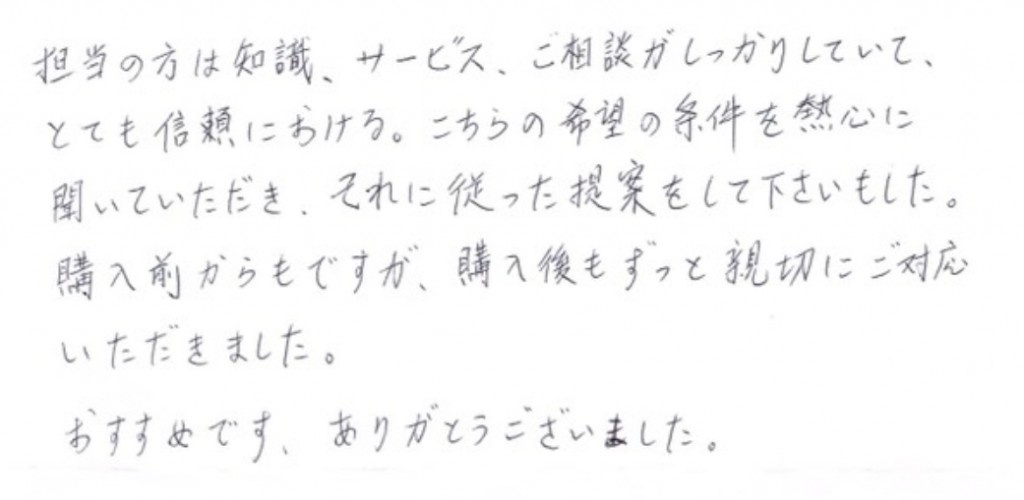 担当の方は知識、サービス、ご相談がしっかりしていて、
とても信頼における。こちらの希望の条件を熱心に
聞いていただき、それに従った提案をして下さいもした。
購入前からもですが、購入後もずっと親切にご対応
いただきました。
おすすめです、ありがとうございました。